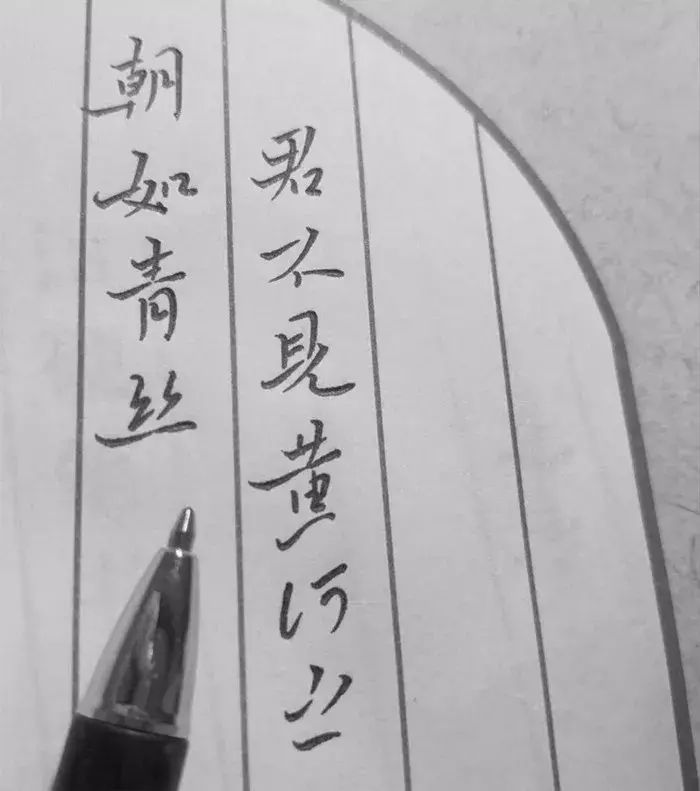 君不見黄河之
朝如青丝